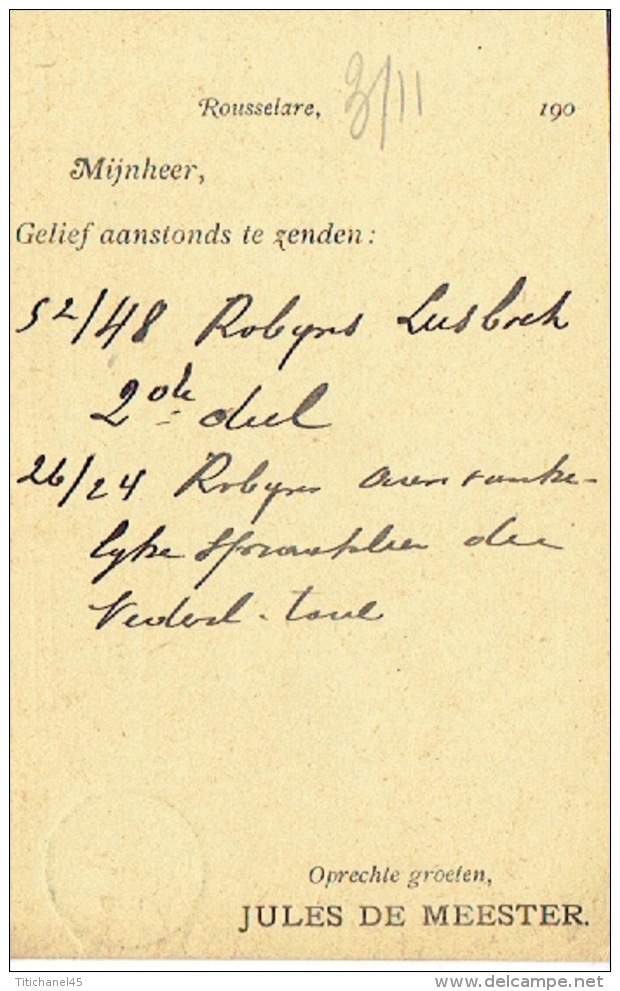 Rousselare, 3/11 190
Mijnheer,
Gelief aanstonds te zenden:
52/48 Robyns Leesboek
2de deel
26/24 Robyns aanvanke-
lyke Spraakleer der
Nederl. taal
Oprechte groeten,
JULES DE MEESTER.
Titichanel45
delcampe.net